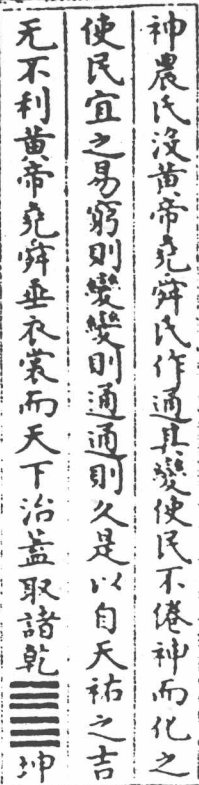 神農氏没黄帝堯舜氏作通其變使民不倦神而化之
使民宜之易窮則變變則通通則久是以自天祐之吉
无不利黄帝堯舜垂衣裳而天下治蓋取諸乾䷀坤